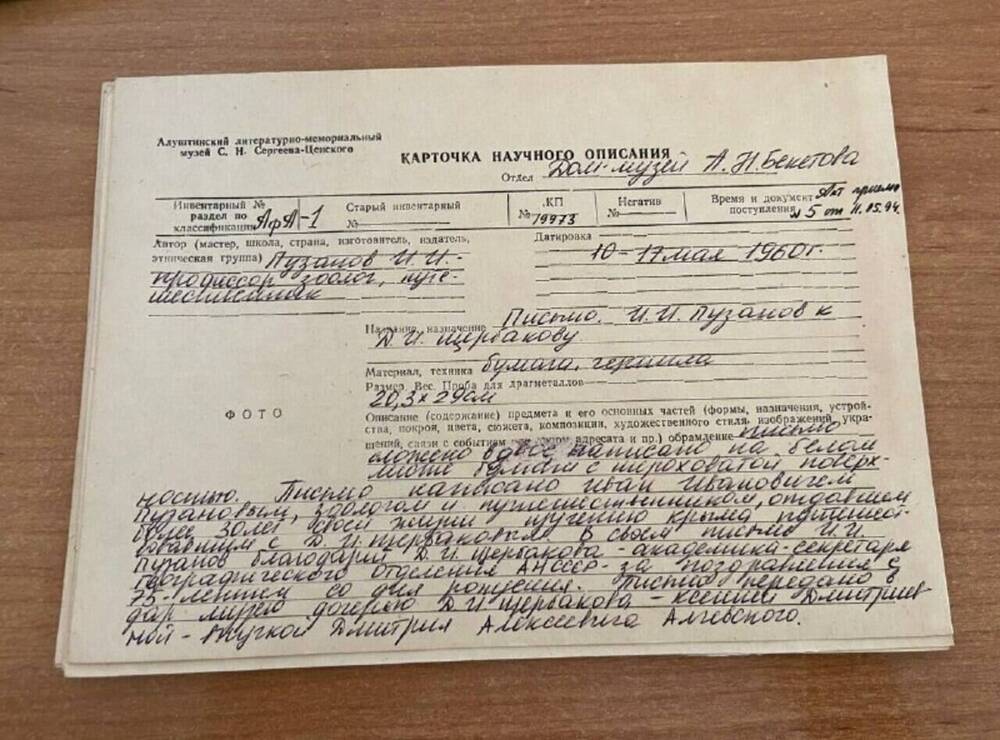 Алуштинский литературно-мемориальный
музей С. Н. Сергеева-Ценского
КАРТОЧКА НАУЧНОГО ОПИСАНИЯ
Отдел Дом-музей А.Н. Бекетова
Инвентарный №
раздел по
классификации АфА-1
Старый инвентарный
№
КП
№ 19973
Негатив
№
Время и документ Акт приема
поступления №5 от 11.05.94
Автор (мастер, школа, страна, изготовитель, издатель,
этническая группа) Пузанов И.И. -
профессор зоолог, путе-
шественник
Датировка
10-17 мая 1960г.
Название, назначение Письмо. И.И. Пузанов к
Д.И. Щербакову
Материал, техника бумага, чернила
Размер. Вес. Проба для драгметаллов
20,3 × 29см
ФОТО
Описание (содержание) предмета и его основных частей (формы, назначения, устрой-
ства, покроя, цвета, сюжета, композиции, художественного стиля, изображений, укра-
шений, связи с событием адресата и пр.) обрамление письмо
сложено вдвое написано на белом
листе бумаги с шероховатой поверх-
ностью. Письмо написано Иван Ивановичем
Пузановым, зоологом и путешественником, отдавшем
более 30 лет своей жизни изучению Крыма путешест-
вовавшим с Д.И. Щербаковым. В своем письме И.И.
Пузанов благодарит Д.И. Щербакова - академика-секретаря
географического отделения АН СССР - за поздравления с
75-летием со дня рождения. Письмо передано в
дар музею дочерью Д.И. Щербакова - Ксенией Дмитриев
ной - внучкой Дмитрия Алексеевича Алчевского.